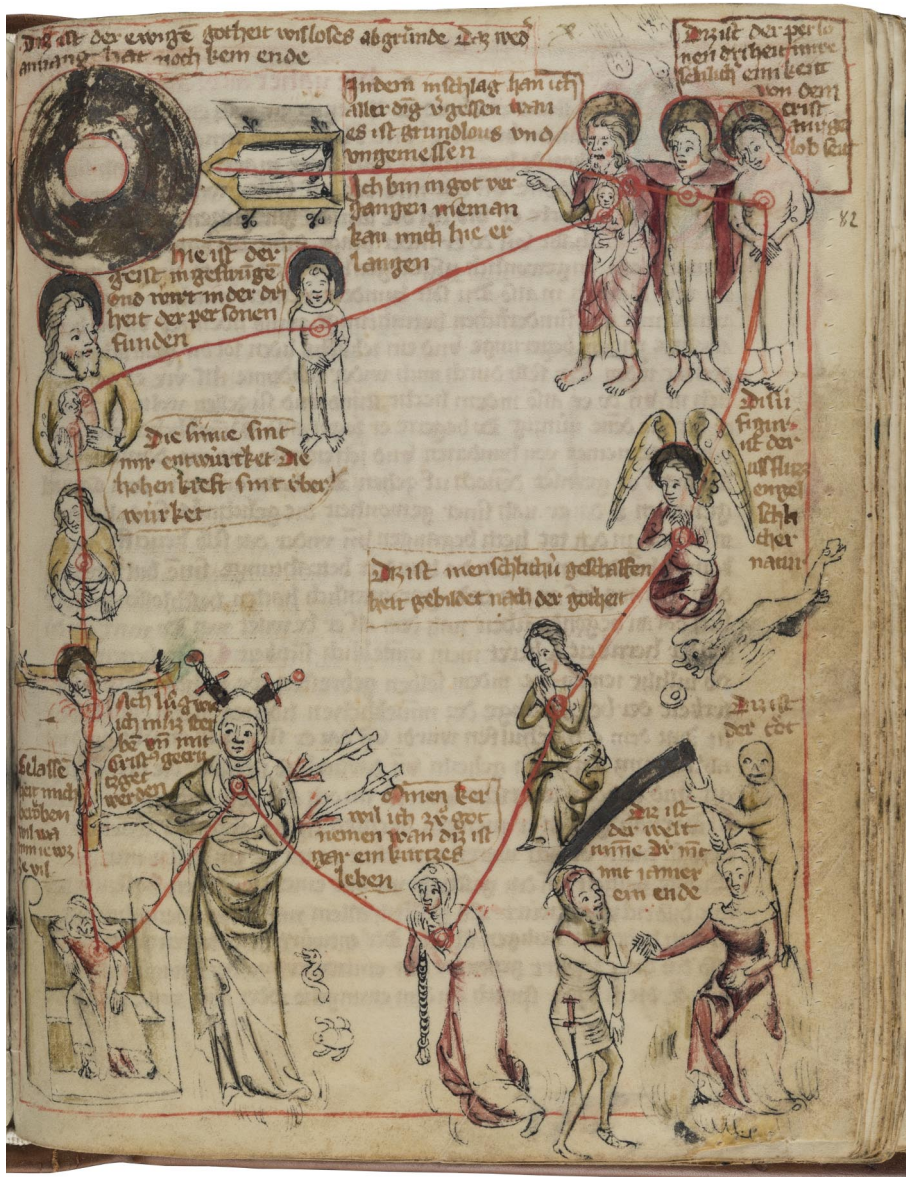 Diz ist der ewigē gotheit wisloses abgrúnde daz wed̄
anuang hat noch kein ende
Diz ist der perso
nen driheit inwe
senlich einikeit
von dem
crist
lob seit
Indem inschlag han ich
aller dīg v̄gessen wan
es ist grundlous vnd
vngemessen
Ich bin in got ver
gangen nieman
kan mich hie er
langen
82
hie ist der
geist ingeswūgē
vnd wirt in der dri
heit der personen
funden
Die sinne sint
mir entwúrket Die
hohen kreft sint úber
wúrket
Disú
figur
ist der
vssflusz
engel
schli
cher
natur
Diz ist menschlichú geschaffen
heit gebildet nach der gotheit
Diz ist
der tot
Ach lug wie
ich můz ster
bē vn̄ mit
crist
werden
Gelasse
heit mich
berőben
wil wa
wil
Dainen ker
wil ich zů got
nemen wan diz ist
gar ein kurtzes
leben
Diz ist
der welt
mine di nīt
mit iamer
ein ende